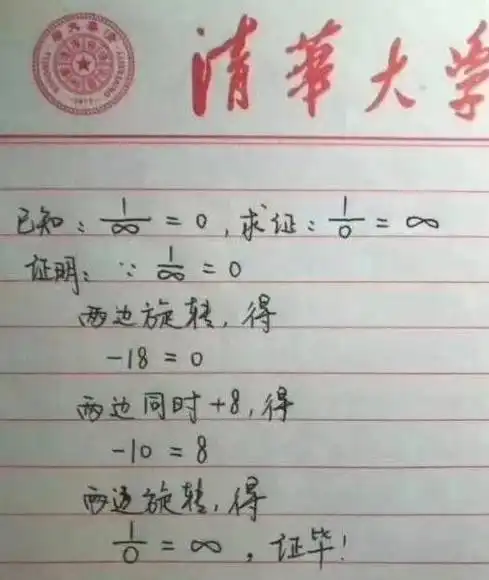 清華大学
已知：1/∞ = 0，求证：1/0 = ∞
证明：∵ 1/∞ = 0
两边旋转，得
-18 = 0
两边同时+8，得
-10 = 8
两边旋转，得
1/0 = ∞，证毕！